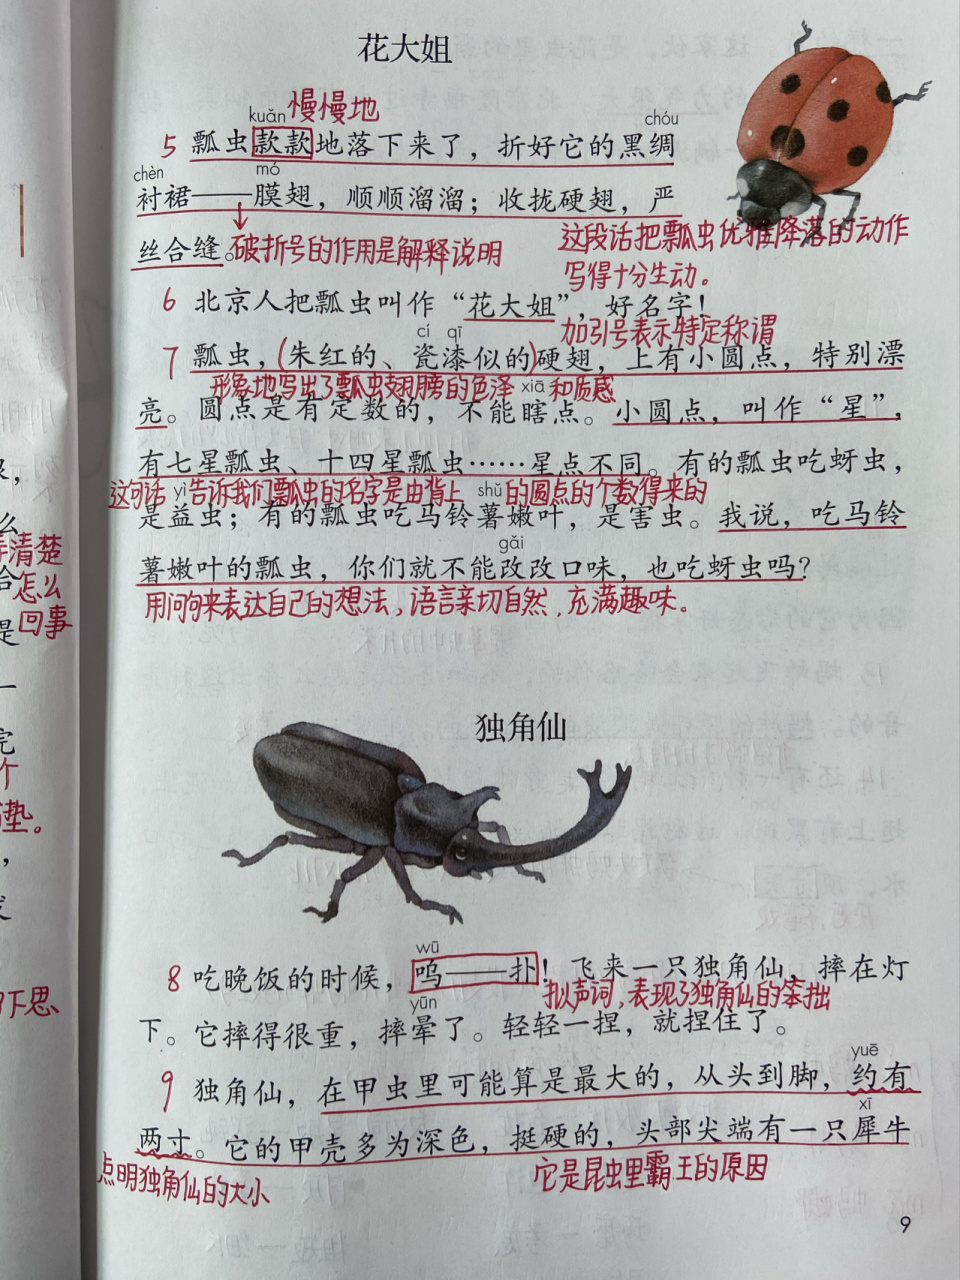 花大姐
kuǎn 慢慢地 chóu
5 瓢虫款款地落下来了，折好它的黑绸
chèn mó
衬裙——膜翅，顺顺溜溜；收拢硬翅，严
丝合缝。破折号的作用是解释说明
这段话把瓢虫优雅降落的动作
写得十分生动。
6 北京人把瓢虫叫作“花大姐”，好名字！
加引号表示特定称谓
cí qī
7 瓢虫，(朱红的、瓷漆似的)硬翅，上有小圆点，特别漂
形象地写出了瓢虫翅膀的色泽和质感
xiā
亮。圆点是有定数的，不能瞎点。小圆点，叫作“星”，
有七星瓢虫、十四星瓢虫……星点不同。有的瓢虫吃蚜虫，
这句话告诉我们瓢虫的名字是由背上的圆点的个数得来的
yì shǔ
是益虫；有的瓢虫吃马铃薯嫩叶，是害虫。我说，吃马铃
gǎi
薯嫩叶的瓢虫，你们就不能改改口味，也吃蚜虫吗？
用问句来表达自己的想法，语言亲切自然，充满趣味。
独角仙
wū
8 吃晚饭的时候，呜——扑！飞来一只独角仙，摔在灯
拟声词，表现了独角仙的笨拙
yūn
下。它摔得很重，摔晕了。轻轻一捏，就捏住了。
yuē
9 独角仙，在甲虫里可能算是最大的，从头到脚，约有
xī
两寸。它的甲壳多为深色，挺硬的，头部尖端有一只犀牛
点明独角仙的大小
它是昆虫里霸王的原因
9
清楚
怎么
回事
垫。